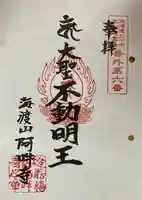 奉拝
番外第六番
大聖不動明王
海渡山 阿吽寺